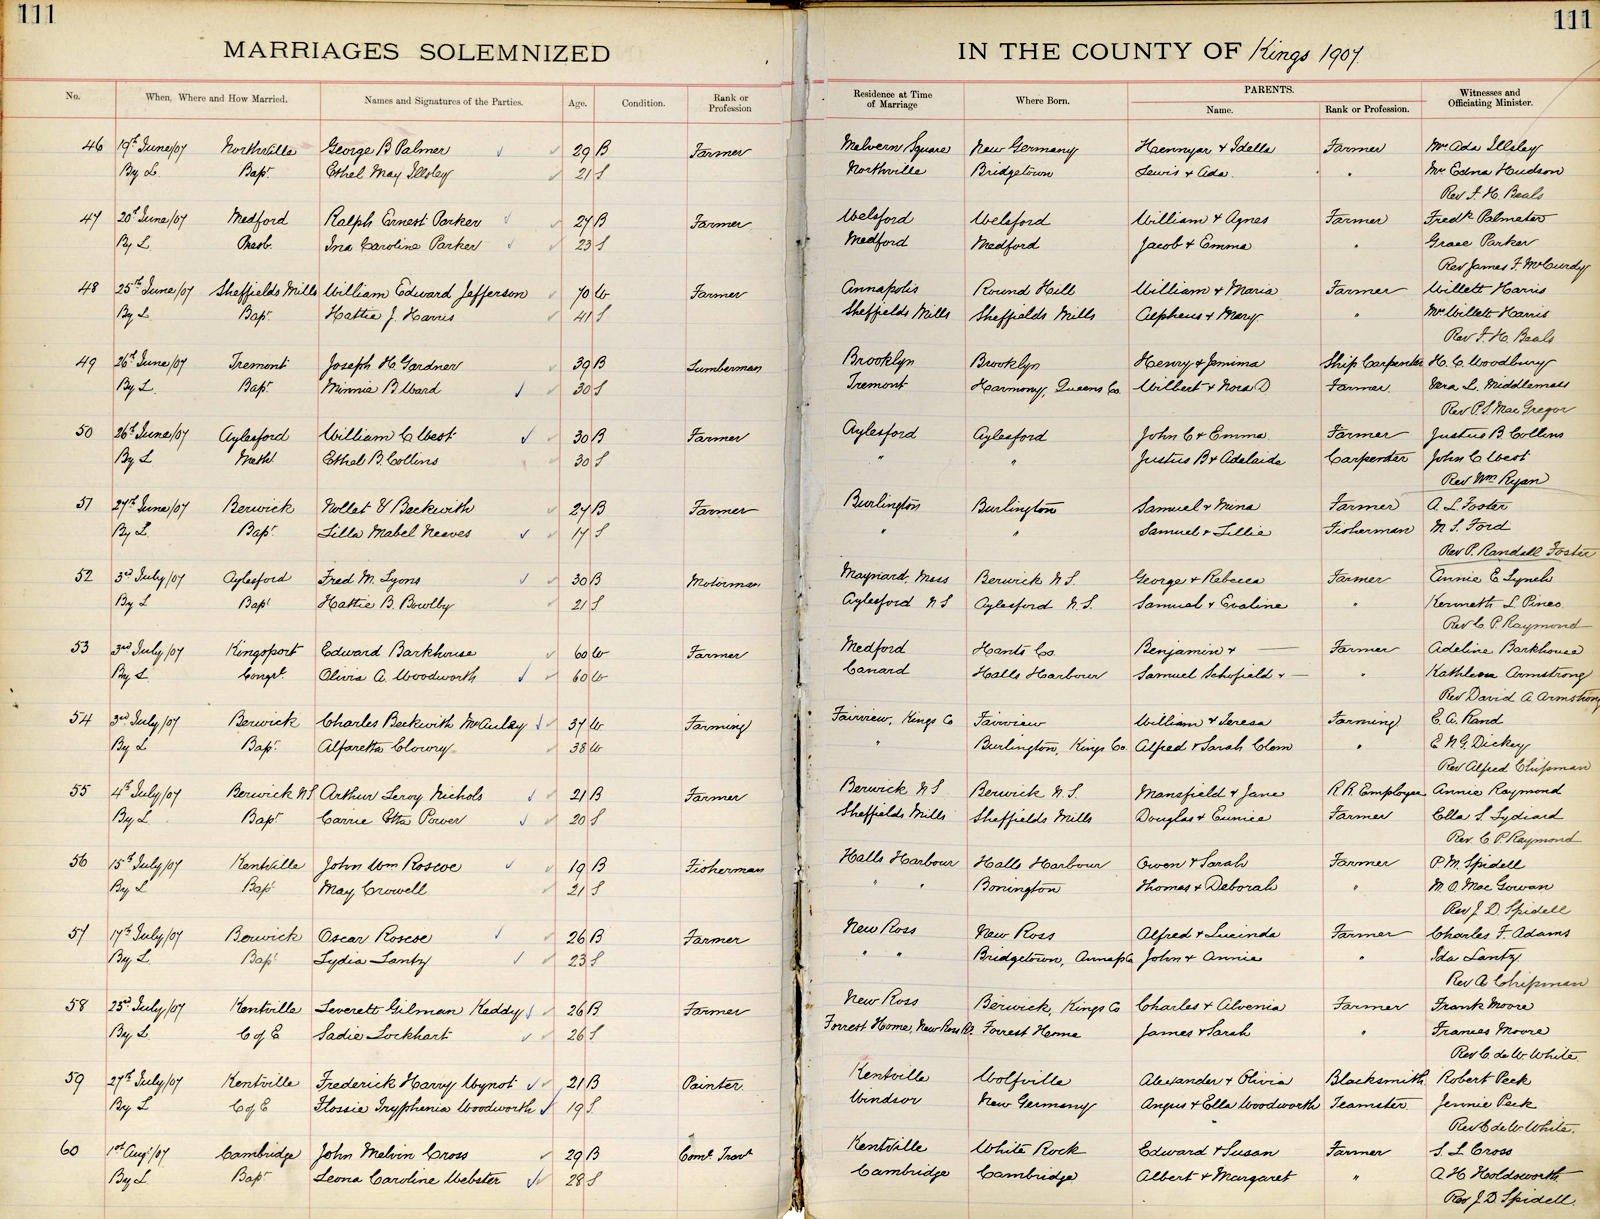 111
MARRIAGES SOLEMNIZED
No. When, Where and How Married. Names and Signatures of the Parties. Age. Condition. Rank or Profession
46 19th June/07 Northville George B Palmer 29 B Farmer
By L. Bapt. Ethel May Illsley 21 S
47 20th June/07 Medford Ralph Ernest Parker 27 B Farmer
By L. Presb. Ina Caroline Parker 23 S
48 25th June/07 Sheffields Mills William Edward Jefferson 70 W Farmer
By L. Bapt. Hattie J. Harris 41 S
49 26th June/07 Tremont Joseph H. Gardner 39 B Lumberman
By L. Bapt. Minnie B. Ward 30 S
50 26th June/07 Aylesford William C West 30 B Farmer
By L Meth. Ethel B. Collins 30 S
51 27th June/07 Berwick Beckwith 27 B Farmer
By L. Bapt. Lilla Mabel Neaves 17 S
52 3rd July/07 Aylesford Fred M. Lyons 30 B Motorman
By L Bapt Hattie B. Bowlby 21 S
53 3rd July/07 Kingsport Edward Barkhouse 60 W Farmer
By L Congt. Olivia A. Woodworth 60 W
54 3rd July/07 Berwick Charles Beckwith McAulay 37 W Farming
By L Bapt. Alfaretta Clowry 38 W
55 4th July/07 Berwick N S Arthur Leroy Nichols 21 B Farmer
By L. Bapt. Carrie Etta Power 20 S
56 15th July/07 Kentville John Wm Roscoe 19 B Fisherman
By L Bapt May Crowell 21 S
57 17th July/07 Berwick Oscar Roscoe 26 B Farmer
By L. Bapt Lydia Lantz 23 S
58 25th July/07 Kentville Leverett Gilman Keddy 26 B Farmer
By L C of E Sadie Lockhart 26 S
59 27th July/07 Kentville Frederick Harry Wynot 21 B Painter
By L C of E Flossie Tryphenia Woodworth 19 S
60 1st Aug/07 Cambridge John Melvin Cross 29 B Coml. Travr
By L Bapt Leona Caroline Webster 28 S
111
IN THE COUNTY OF Kings 1907
Residence at Time of Marriage Where Born. PARENTS. Name. Rank or Profession. Witnesses and Officiating Minister.
Melvern Square New Germany Hennyar & Idella Farmer Mrs Ada Illsley
Northville Bridgetown Lewis & Ada " Mrs Edna Hudson
Rev F. H. Beals
Welsford Welsford William & Agnes Farmer Fredk Palmeter
Medford Medford Jacob & Emma " Grace Parker
Rev James F. McCurdy
Annapolis Round Hill William & Maria Farmer Willett Harris
Sheffields Mills Sheffields Mills Alpheus & Mary " Mrs Willett Harris
Rev F. H. Beals
Brooklyn Brooklyn Henry & Jemima Ship Carpenter H. C. Woodbury
Tremont Harmony, Queens Co. Wilbert & Nora D Farmer Vera L. Middlemass
Rev P. S. MacGregor
Aylesford Aylesford John C & Emma Farmer Justus B Collins
" " Justus B & Adelaide Carpenter John C West
Rev Wm Ryan
Burlington Burlington Samuel & Mina Farmer A. L. Foster
" " Samuel & Lillie Fisherman M. S. Ford
Rev P. Randall Foster
Maynard, Mass Berwick N.S. George & Rebecca Farmer Annie E Lynch
Aylesford N S Aylesford N.S. Samuel & Evaline " Kenneth L. Pineo
Rev C. P. Raymond
Medford Hants Co Benjamin & — Farmer Adeline Barkhouse
Canard Halls Harbour Samuel Schofield & — " Kathleen Armstrong
Rev David A Armstrong
Fairview, Kings Co Fairview William & Teresa Farming E. A. Rand
" Burlington, Kings Co. Alfred & Sarah Clem " E N G. Dickey
Rev Alfred Chipman
Berwick N S Berwick N S. Mansfield & Jane R R Employee Annie Raymond
Sheffields Mills Sheffields Mills Douglas & Eunice Farmer Ella S. Lydiard
Rev. C. P. Raymond
Halls Harbour Halls Harbour Owen & Sarah Farmer P. M. Spidell
" " Bonington Thomas & Deborah " M. O. MacGowan
Rev J. D. Spidell
New Ross New Ross Alfred & Lucinda Farmer Charles F. Adams
" " Bridgetown, Annap Co John & Annie " Ida Lantz
Rev A Chipman
New Ross Berwick, Kings Co Charles & Alvenia Farmer Frank Moore
Forrest Home, New Ross Rd. Forrest Home James & Sarah " Frances Moore
Rev C de W. White
Kentville Wolfville Alexander & Olivia Blacksmith Robert Peck
Windsor New Germany Angus & Ella Woodworth Teamster Jennie Peck
Rev C de W. White.
Kentville White Rock Edward & Susan Farmer S. L Cross
Cambridge Cambridge Albert & Margaret " A H. Holdsworth
Rev J. D. Spidell